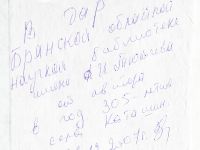 В дар
Брянской областной
научной библиотеке
имени Ф И Тютчева
от автора
в год 305 летия
села Каташин.
2007г.